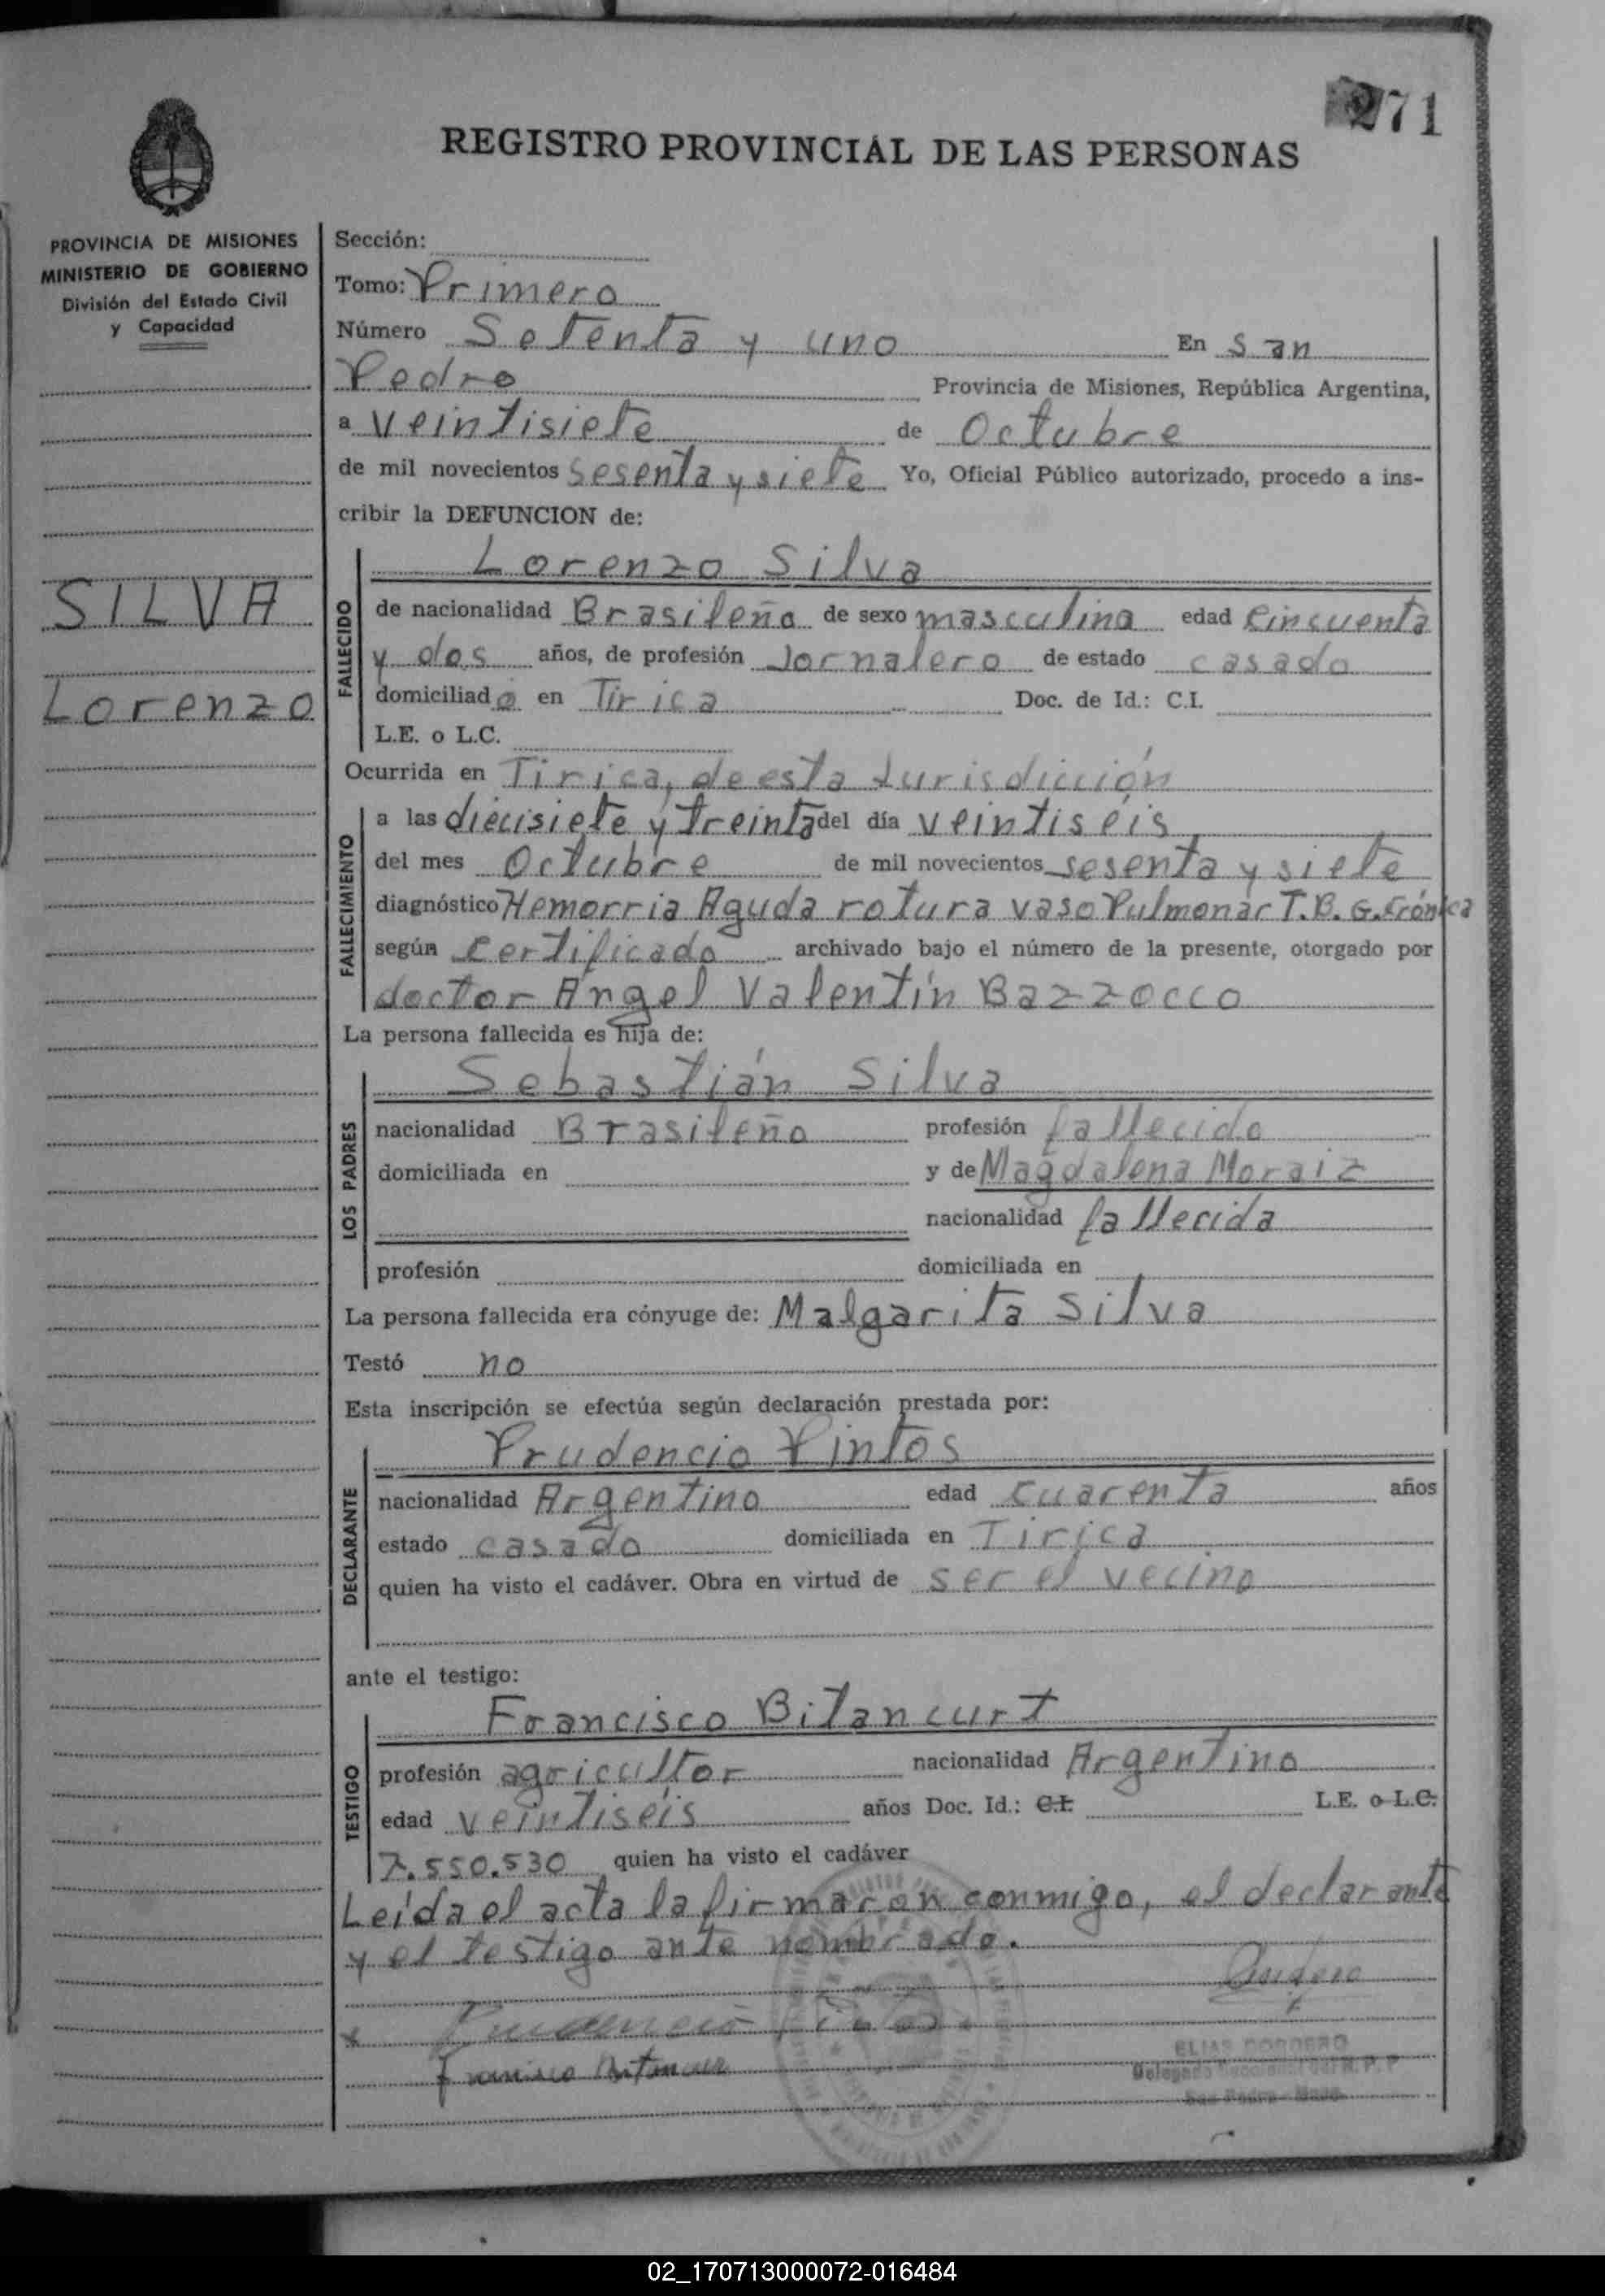 271
REGISTRO PROVINCIAL DE LAS PERSONAS
PROVINCIA DE MISIONES
MINISTERIO DE GOBIERNO
División del Estado Civil
y Capacidad
SILVA
Lorenzo
Sección:
Tomo: Primero
Número Setenta y uno En San
Pedro Provincia de Misiones, República Argentina,
a veintisiete de Octubre
de mil novecientos sesenta y siete Yo, Oficial Público autorizado, procedo a ins-
cribir la DEFUNCION de:
FALLECIDO
Lorenzo Silva
de nacionalidad Brasileño de sexo masculino edad Cincuenta
y dos años, de profesión Jornalero de estado casado
domiciliado en Tirica Doc. de Id.: C.I.
L.E. o L.C.
Ocurrida en Tirica, de esta Jurisdicción
FALLECIMIENTO
a las diecisiete y treinta del día veintiséis
del mes Octubre de mil novecientos sesenta y siete
diagnóstico Hemorria Aguda rotura vaso Pulmonar T.B.G. Crónica
según certificado archivado bajo el número de la presente, otorgado por
doctor Angel Valentín Bazzocco
La persona fallecida es hija de:
LOS PADRES
Sebastián Silva
nacionalidad Brasileño profesión fallecido
domiciliada en y de Magdalena Moraiz
nacionalidad fallecida
profesión domiciliada en
La persona fallecida era cónyuge de: Malgarita Silva
Testó no
Esta inscripción se efectúa según declaración prestada por:
DECLARANTE
Prudencio Pintos
nacionalidad Argentino edad cuarenta años
estado casado domiciliada en Tirica
quien ha visto el cadáver. Obra en virtud de ser el vecino
ante el testigo:
TESTIGO
Francisco Bitancurt
profesión agricultor nacionalidad Argentino
edad veintiséis años Doc. Id.: C.I. L.E. o L.C.
7.550.530 quien ha visto el cadáver
Leída el acta la firmaron conmigo, el declarante
y el testigo ante nombrado.
Prudencio Pintos
Francisco Bitancur
ELIAS CORDERO
San Pedro - Mnes.
02_170713000072-016484